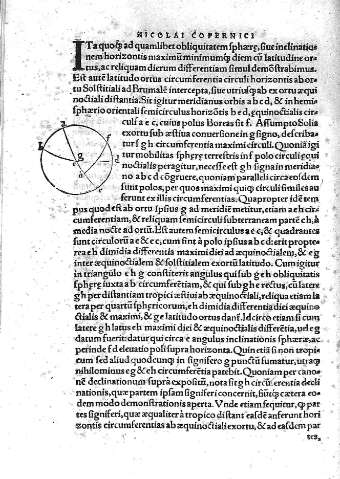 NICOLAI COPERNICI
ITa quoq; ad quamlibet obliquitatem sphæræ, siue inclinatio
nem horizontis maximũ minimumq; diem cũ latitudine or
tus, ac reliquam dierum differentiam simul demõstrabimus.
Est autẽ latitudo ortus circumferentia circuli horizontis ab ortu
Solstitiali ad Brumalẽ intercepta, siue utriusq; ab ex ortu æqui
noctiali distantia. Sit igitur meridianus orbis a b c d, & in hemi
sphærio orientali semicirculus horizõtis b e d, æquinoctialis cir
culi a e c, cuius polus Boreus sit f. Assumpto Solis
exortu sub æstiua conuersione in g signo, describa
tur f g h circumferentia maximi circuli. Quoniã igi
tur mobilitas sphæræ terrestris in f polo circuli æqui
noctialis peragitur, necesse est g h signa in meridia
no a b c d cõgruere, quoniam paralleli circa eosdem
sunt polos, per quos maximi quiq; circuli similes au
ferunt ex illis circumferentias. Quapropter idẽ tem
pus quod est ab ortu ipsius g ad meridiẽ metitur, etiam a e h cir
cumferentiam, & reliquam semicirculi subterraneam partẽ c h, à
media nocte ad ortũ. Est autẽ semicirculus a e c, & quadrantes
sunt circulorũ a e & e c, cum sint à polo ipsius a b c d: erit propte
rea e h dimidia differentia maximi diei ad æquinoctialem, & e g
inter æquinoctialem & solstitialem exortũ latitudo. Cum igitur
in triangulo e h g constiterit angulus qui sub g e h obliquitatis
sphæræ iuxta a b circumferẽtiam, & qui sub g h e rectus, cũ latere
g h per distantiam tropici æstiui ab æquinoctiali, reliqua etiam la
tera per quartũ sphæricorum, e h dimidia differentia diei æquino
ctialis & maximi, & g e latitudo ortus dantur. Idcirco etiam si cum
latere g h latus e h maximi diei & æquinoctialis differẽtia, uel e g
datum fuerit: datur qui circa e angulus inclinationis sphæræ, ac
perinde f d eleuatio poli supra horizonta. Quin etiã si non tropi
cum sed aliud quodcunq; in signifero g punctũ sumatur, utraq;
nihilominus e g & e h circumferẽtia patebit. Quoniam per cano=
nẽ declinationum supra expositũ, nota sit g h circũferentia decli
nationis, quæ partem ipsam signiferi concernit, fiuntq; cætera eo=
dem modo demonstrationis aperta. Vnde etiam sequitur, q̃ par
tes signiferi, quæ æqualiter à tropico distant easdẽ auferunt hori
zontis circumferentias ab æquinoctiali exortu, & ad easdem par
tes,